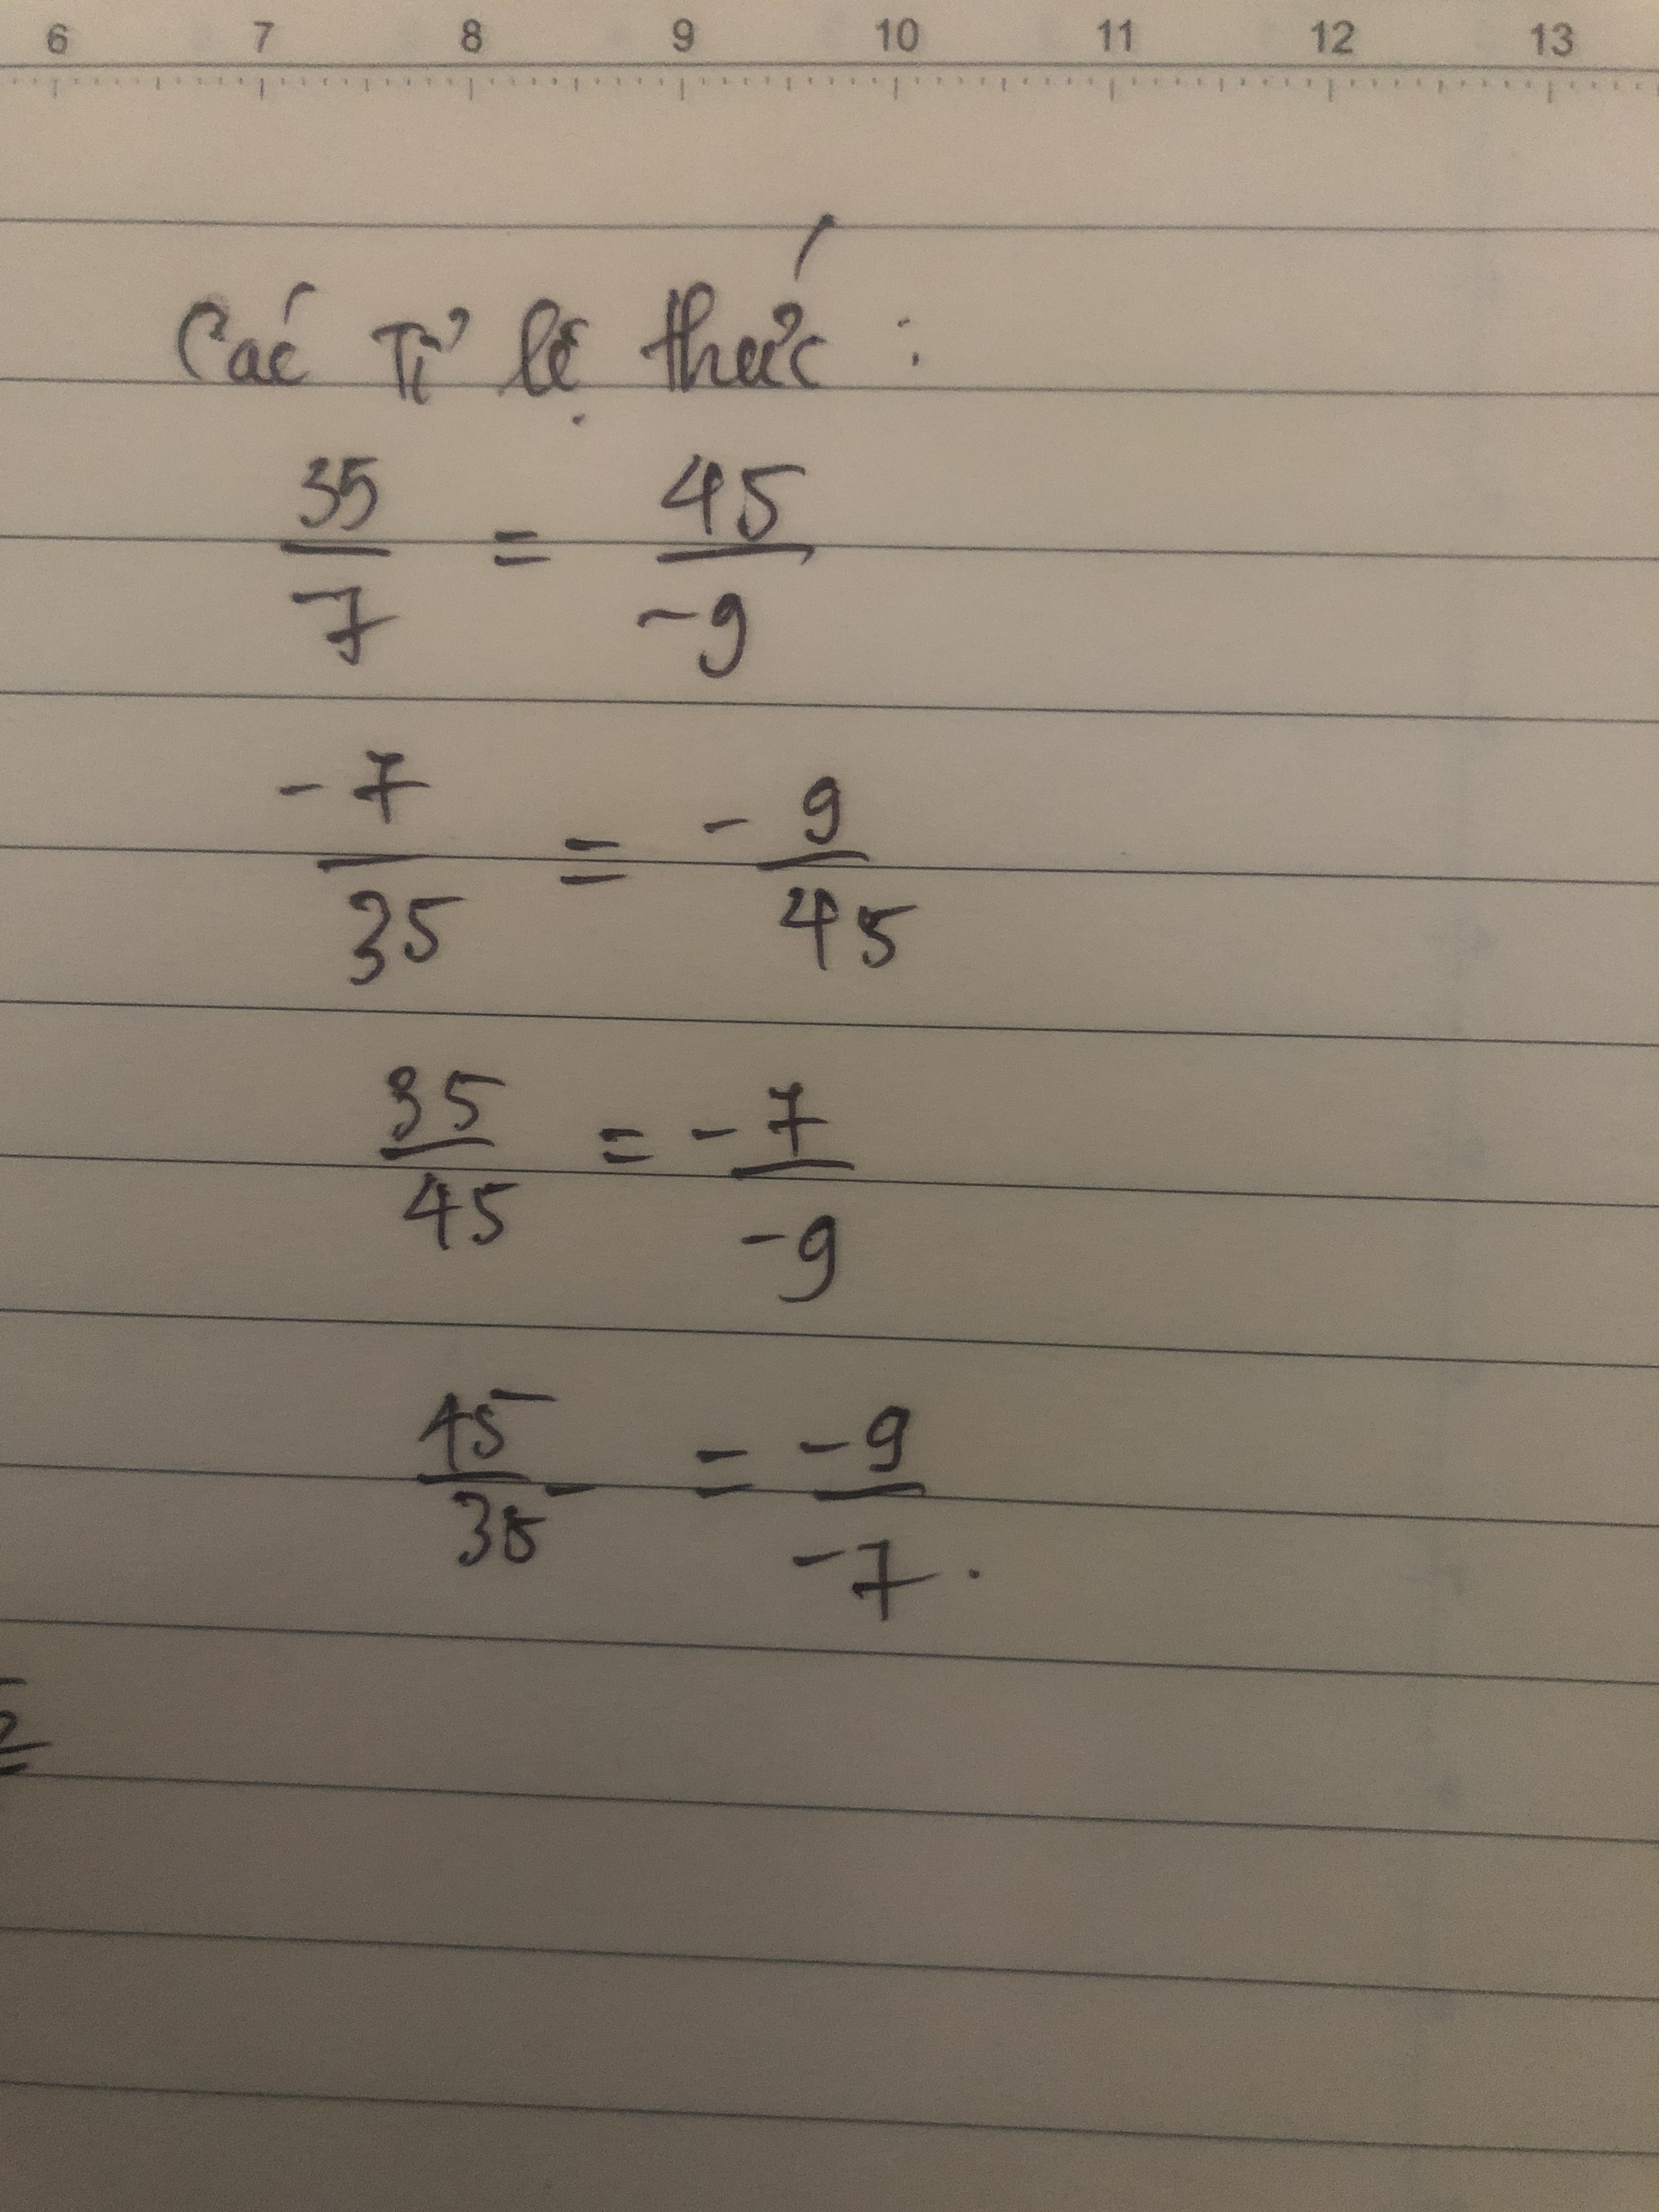 6 7 8 9 10 11 12 13
Các Tỉ lệ thức :
35/-7 = 45/-9
-7/35 = -9/45
35/45 = -7/-9
45/35 = -9/-7.